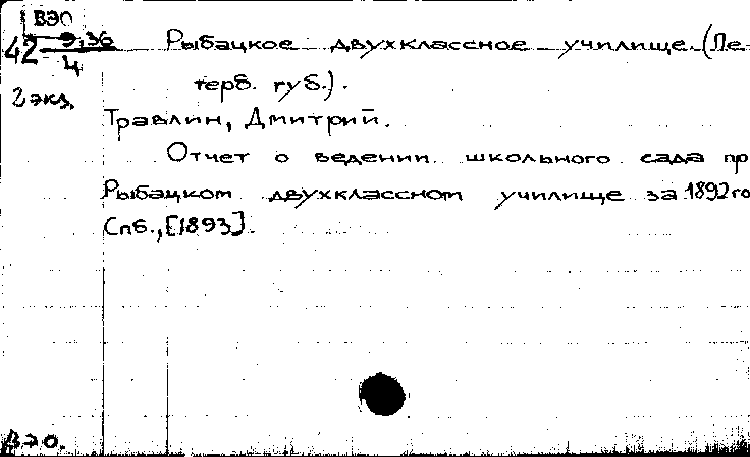 ВЭО
42 9.36
4
2 экз.
Рыбацкое двухклассное училище. (Пе
терб. губ.).
Травлин, Дмитрий.
Отчет о ведении школьного сада пр
Рыбацком двухклассном училище за 1892 го
Спб., [1893].
ВЭО.